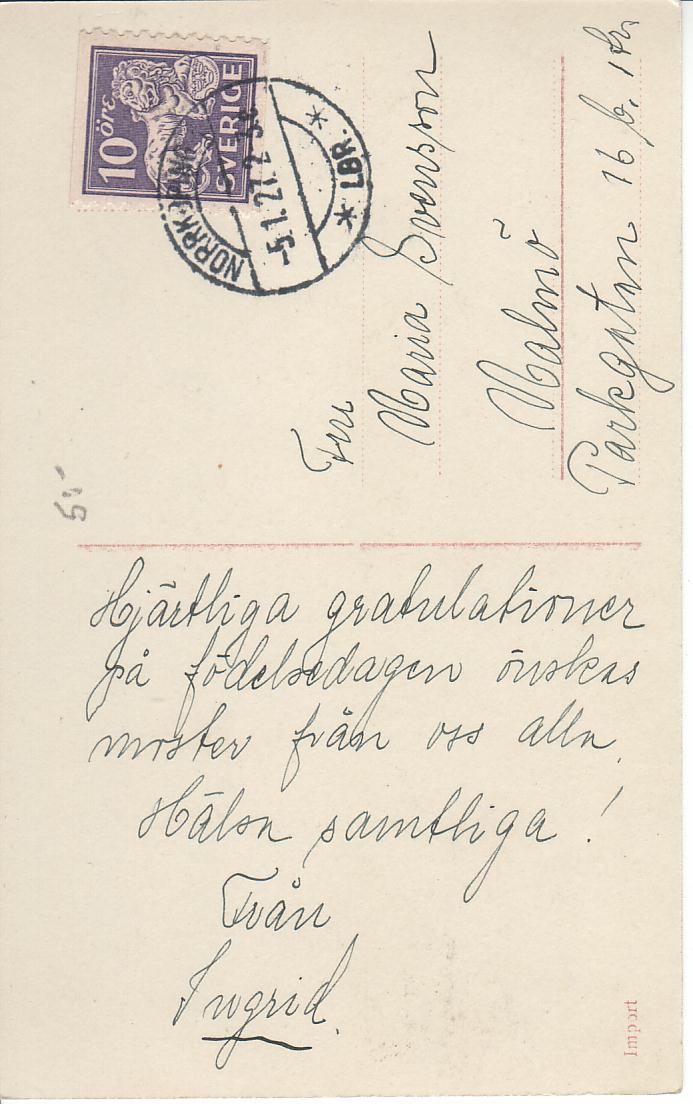 10 öre
SVERIGE
NORRKÖPING
-5.1.27.2
* LBR. *
Fru
Maria Svensson
Malmö
Parkgatan 16 b. 1 tr.
5:-
Hjärtliga gratulationer
på födelsedagen önskas
moster från oss alla.
Hälsa samtliga!
Från
Ingrid.
Import